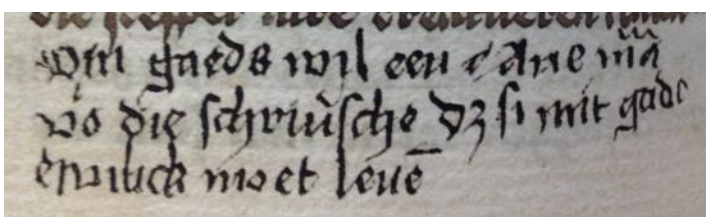 Om gaeds wil een Aue mͣa
vo die schriu̇sche dz si mit gade
ewilick moet leuē